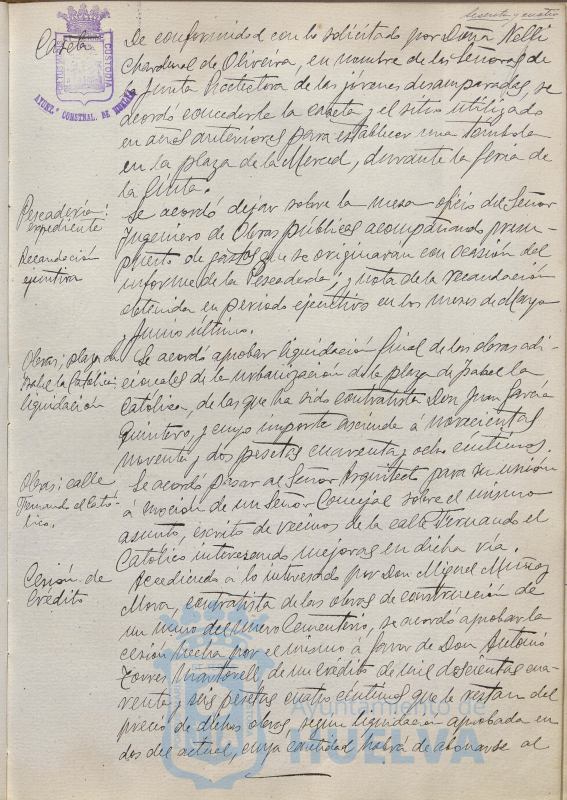 Sesenta y cuatro
Caseta
De conformidad con lo solicitado por Doña Nelli
Chardenal de Oliveira, en nombre de las Señoras de
la Junta Protectora de las jóvenes desamparadas, se
acordó concederle la caseta y el sitio utilizado
en años anteriores para establecer una tómbola
en la plaza de la Merced, durante la feria de
la Cinta.
Pescadería:
expediente
Recaudación
ejecutiva
Se acordó dejar sobre la mesa oficio del Señor
Ingeniero de Obras públicas acompañando presu-
puesto de gastos que se originaran con ocasión del
informe de la Pescadería, y nota de la recaudación
obtenida en periodo ejecutivo en los meses de Mayo
y Junio último.
Obras; plaza de
Isabel la Católica:
liquidación
Se acordó aprobar liquidación final de las obras adi-
cionales de la urbanización de la plaza de Isabel la
Católica, de las que ha sido contratista Don Juan García
Quintero, y cuyo importe asciende á novecientas
noventa y dos pesetas cuarenta y ocho céntimos.
Obras; calle
Fernando el Cató-
lico.
Se acordó pasar al Señor Arquitecto para su unión
a moción de un Señor Concejal sobre el mismo
asunto, escrito de vecinos de la calle Fernando el
Católico interesando mejoras en dicha vía.
Cesión de
Crédito
Accediendo a lo interesado por Don Miguel Muñoz
Mora, contratista de las obras de construcción de
un muro del nuevo Cementerio, se acordó aprobar la
cesión hecha por el mismo á favor de Don Antonio
Torres Martorell, de un crédito de mil doscientas cua-
renta y seis pesetas cuatro céntimos que le restan del
precio de dichas obras, según liquidación aprobada en
dos del actual, cuya cantidad habrá de abonarse al
CUSTODIA
AYUNT.º CONSTNAL. DE HUELVA
Ayuntamiento de
HUELVA